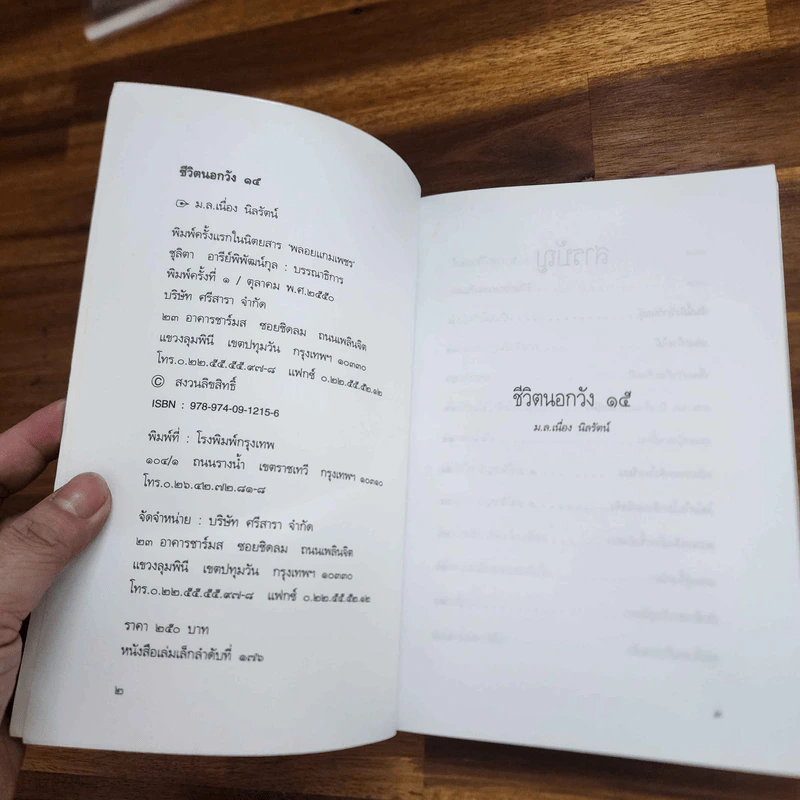 ชีวิตนอกวัง ๑๕
ม.ล.เนื่อง นิลรัตน์
พิมพ์ครั้งแรกในนิตยสาร 'พลอยแกมเพชร'
ชุลิตา อารีย์พิพัฒน์กุล : บรรณาธิการ
พิมพ์ครั้งที่ ๑ / ตุลาคม พ.ศ.๒๕๕๐
บริษัท ศรีสารา จำกัด
๒๓ อาคารชาร์มส ซอยชิดลม ถนนเพลินจิต
แขวงลุมพินี เขตปทุมวัน กรุงเทพฯ ๑๐๓๓๐
โทร.๐.๒๒.๕๕.๕๕.๙๗-๘ แฟกซ์ ๐.๒๒.๕๕.๕๒.๑๒
© สงวนลิขสิทธิ์
ISBN : 978-974-09-1215-6
พิมพ์ที่ : โรงพิมพ์กรุงเทพ
๑๐๔/๑ ถนนรางน้ำ เขตราชเทวี กรุงเทพฯ ๑๐๓๑๐
โทร.๐.๒๖.๔๒.๗๒.๘๑-๘
จัดจำหน่าย : บริษัท ศรีสารา จำกัด
๒๓ อาคารชาร์มส ซอยชิดลม ถนนเพลินจิต
แขวงลุมพินี เขตปทุมวัน กรุงเทพฯ ๑๐๓๓๐
โทร.๐.๒๒.๕๕.๕๕.๙๗-๘ แฟกซ์ ๐.๒๒.๕๕.๕๒.๑๒
ราคา ๒๕๐ บาท
หนังสือเล่มเล็กลำดับที่ ๑๗๖
๒
ชีวิตนอกวัง ๑๕
ม.ล.เนื่อง นิลรัตน์